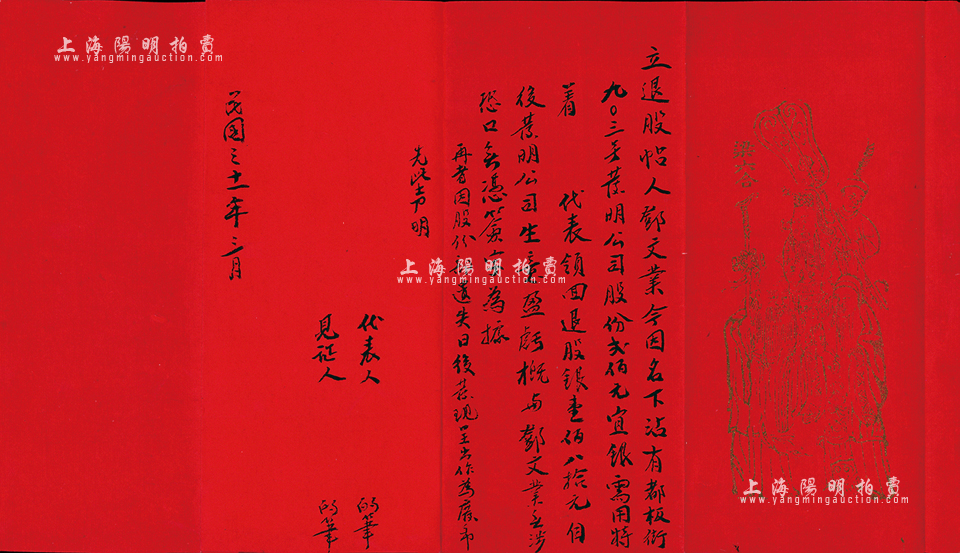 立退股帖人鄧文業今因名下沾有都板街
九〇三号業明公司股份弍佰元宜銀需用特
着 代表領回退股銀壹佰八拾元自
後業明公司生意盈虧概与鄧文業無涉
恐口無憑簽字為據
再者因股份遺失日後發現呈出作為廢帋
先此声明
代表人 的筆
見証人 的筆
民國三十一年三月
上海陽明拍賣
www.yangmingauction.com
上海陽明拍賣
www.yangmingauction.com
上海陽明拍賣
www.yangmingauction.com